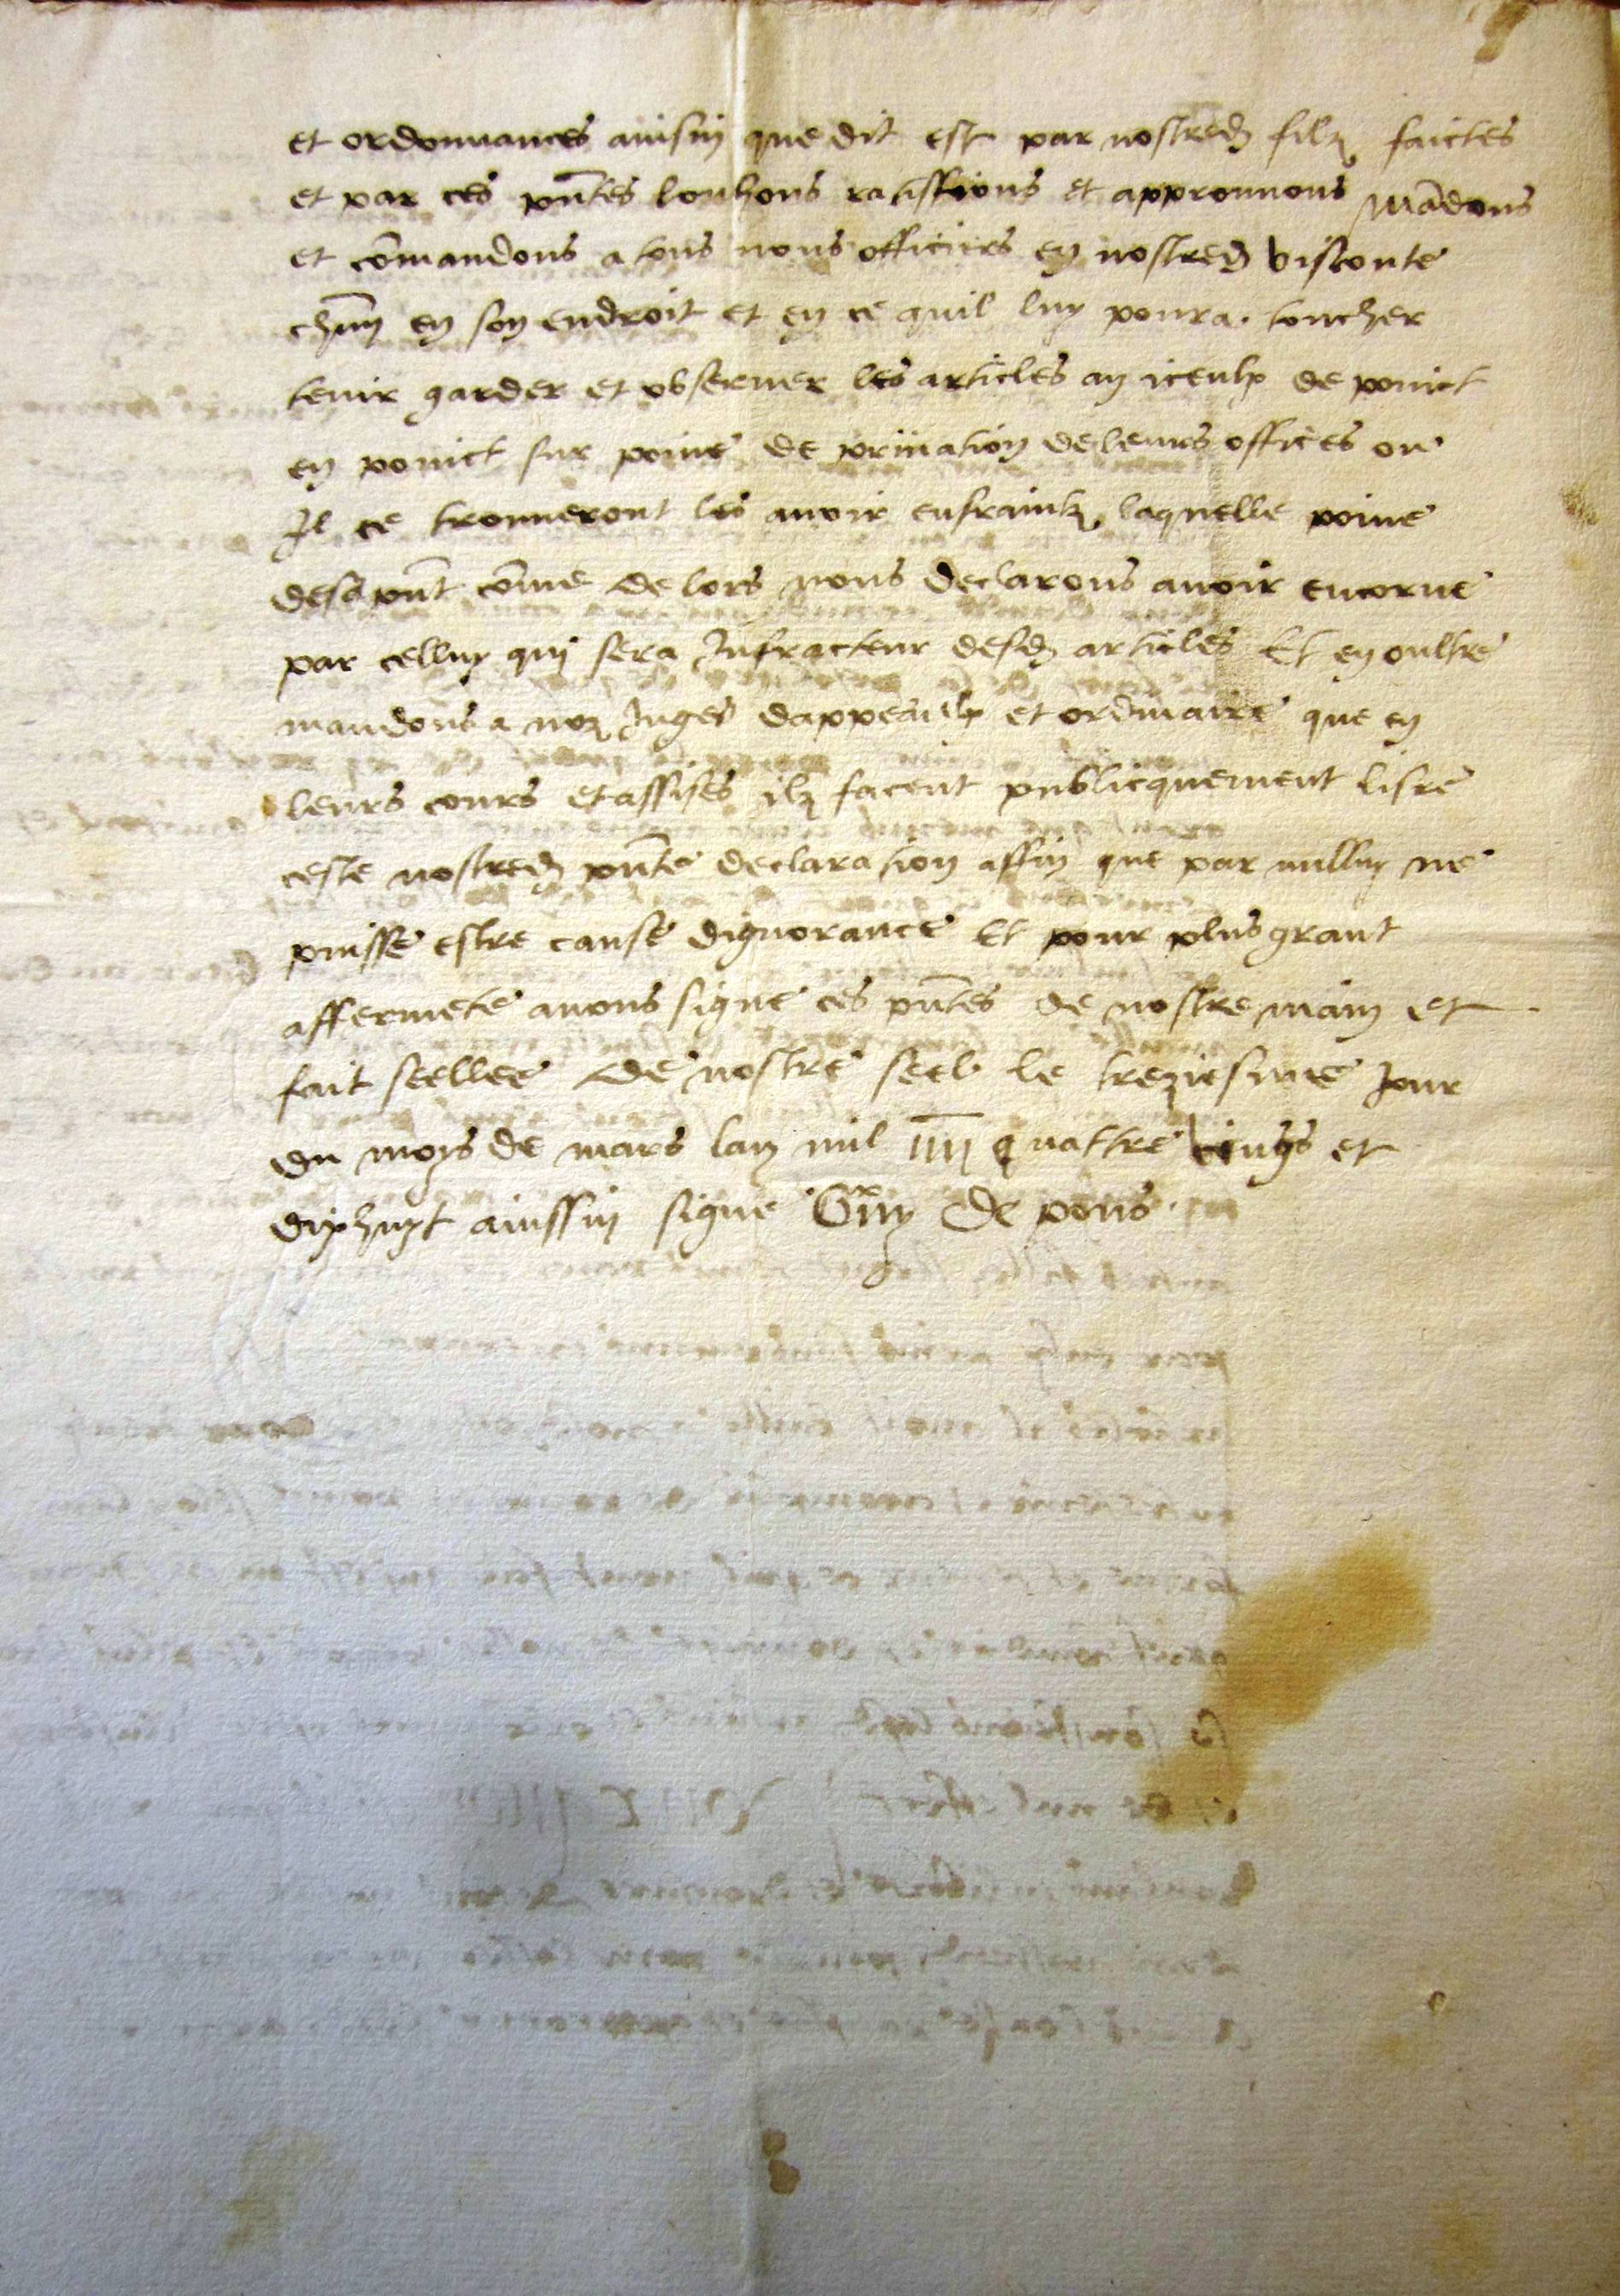 et ordonnances ainsin que dit est par nostred filz faictes
et par ces pntes louhons ratiffions et approuvons mandons
et comandons a tous nous officiers en nostred viscomte
chun en son endroit et en ce quil luy poura toucher
tenir garder et observer les articles an iceulx de poinct
en poinct sur poine de privation de leurs offices ou
Il ce trouveront les avoir enfraintz laquelle poine
desd pnt come de lors nous declarons avoir encorue
par celluy qui sera Infracteur desd articles Et en oultre
mandons a noz Juges dappeaulx et ordinaire que en
leurs cours et assises ilz facent publicquement lisre
ceste nostred pnte declaration affin que par nulluy ne
puisse estre cause dignorance Et pour plus grant
affermete avons signe ces pntes de nostre main et
fait seellee de nostre seel le treziesme jour
du moys de mars lan mil IIII quattre vings et
dixhuyt ainssin signe Guy de pons